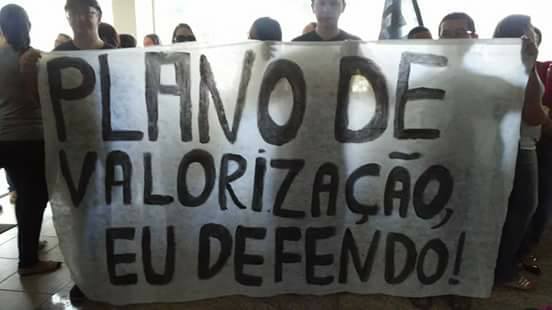 PLANO DE
VALORIZAÇÃO,
EU DEFENDO!